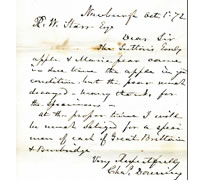 Newburgh Oct 1. 72
R. W. Starr Esq
Dear Sir
The Suttons Early
apple & Marie pear came
in due time the apple in good
condition but the pear much
decayed. many thanks for
the specimens
at the proper time I will
be much obliged for a speci
men of each of Great Brittain
&
Very Respectfully
Chas. Downing